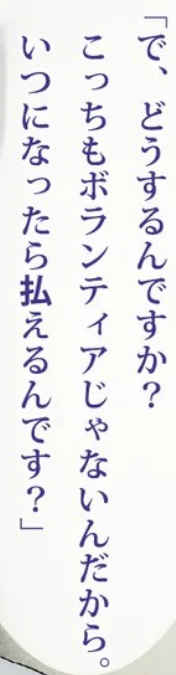 「で、どうするんですか？
こっちもボランティアじゃないんだから。
いつになったら払えるんです？」